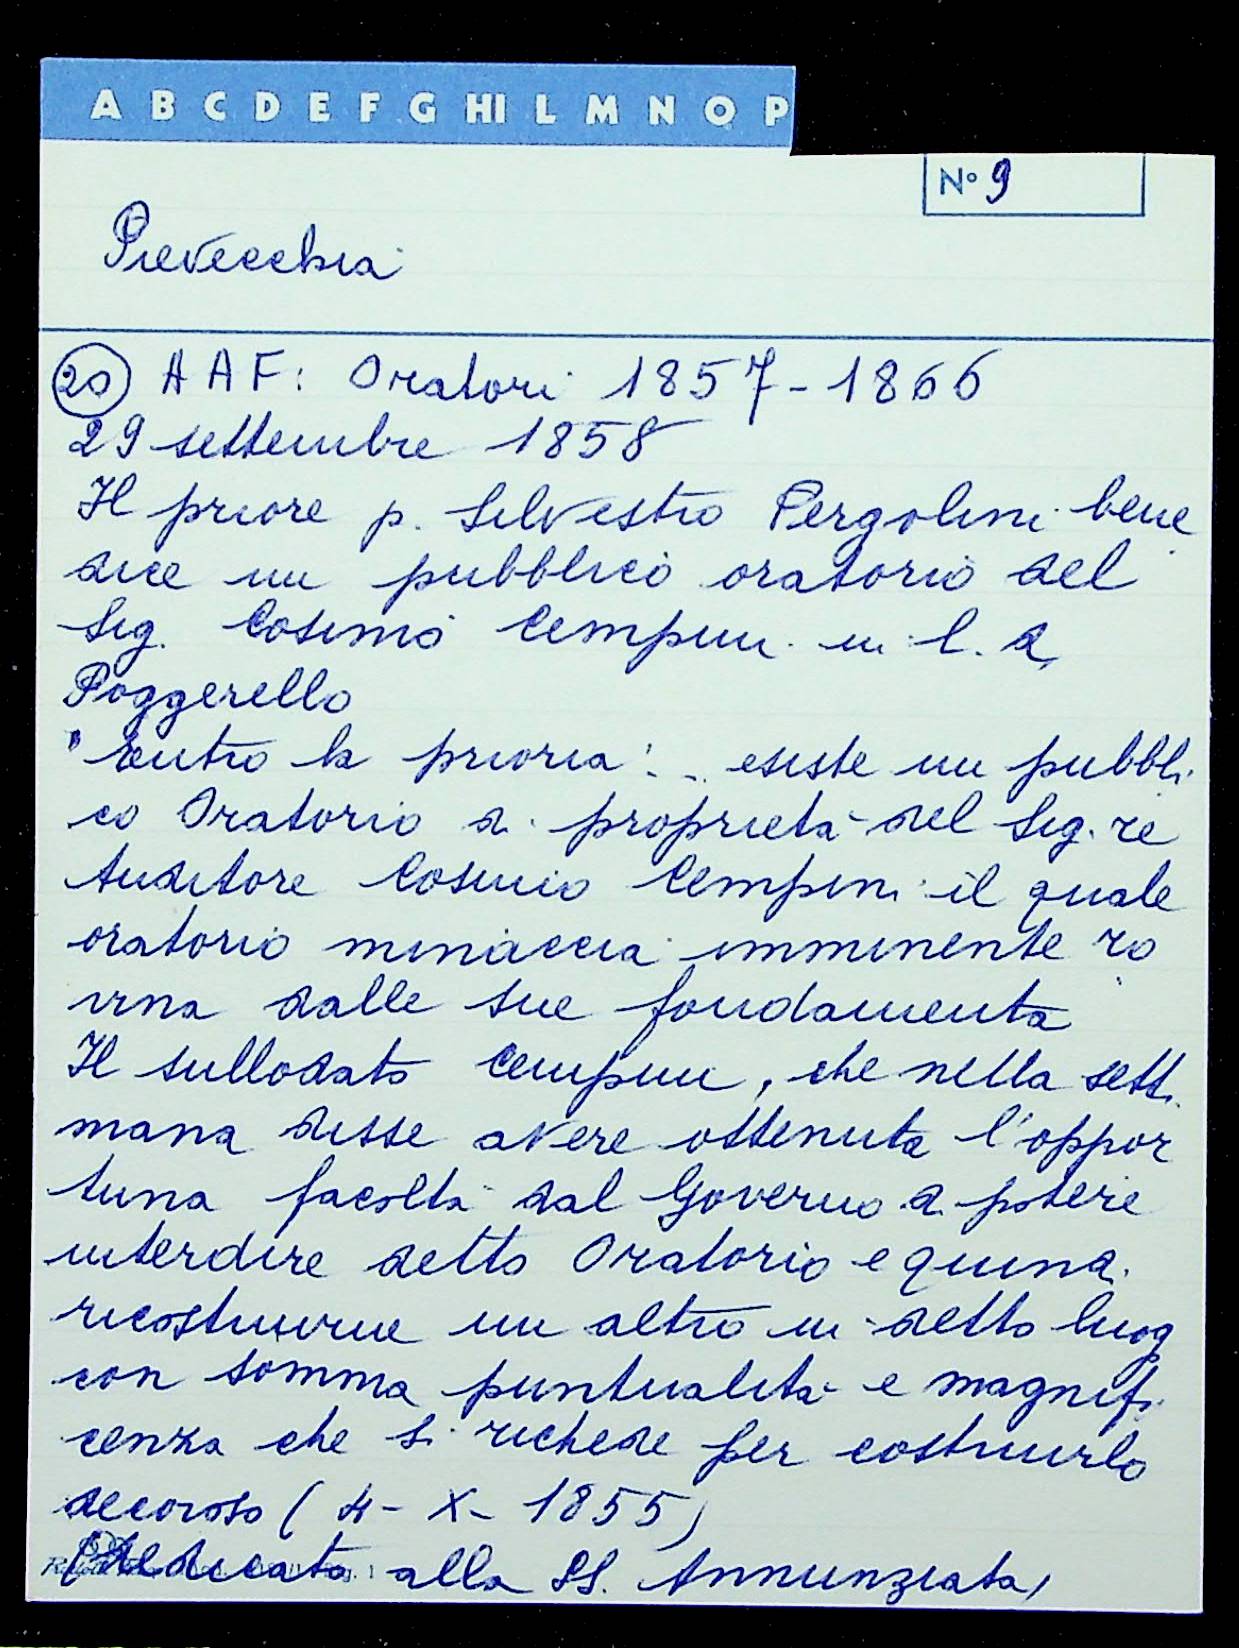 A B C D E F G HI L M N O P
N° 9
Pievecchia
20 AAF: Oratori 1857-1866
29 settembre 1858
Il priore p. Silvestro Pergolini bene
dice un pubblico oratorio del
Sig. Cosimo Cempini in l. di
Poggerello
"Entro la prioria... esiste un pubbli
co Oratorio di proprietà del Sig.re
Auditore Cosimo Cempini il quale
oratorio minaccia imminente ro
vina dalle sue fondamenta
Il sullodato Cempini, che nella setti
mana disse avere ottenuta l'oppor
tuna facoltà dal Governo di potere
interdire detto Oratorio e quindi
ricostruirne un altro in detto luog
con somma puntualità e magnifi
cenza che si richede per costruirlo
decoroso (4-X-1855)
(dedicato alla SS. Annunziata)